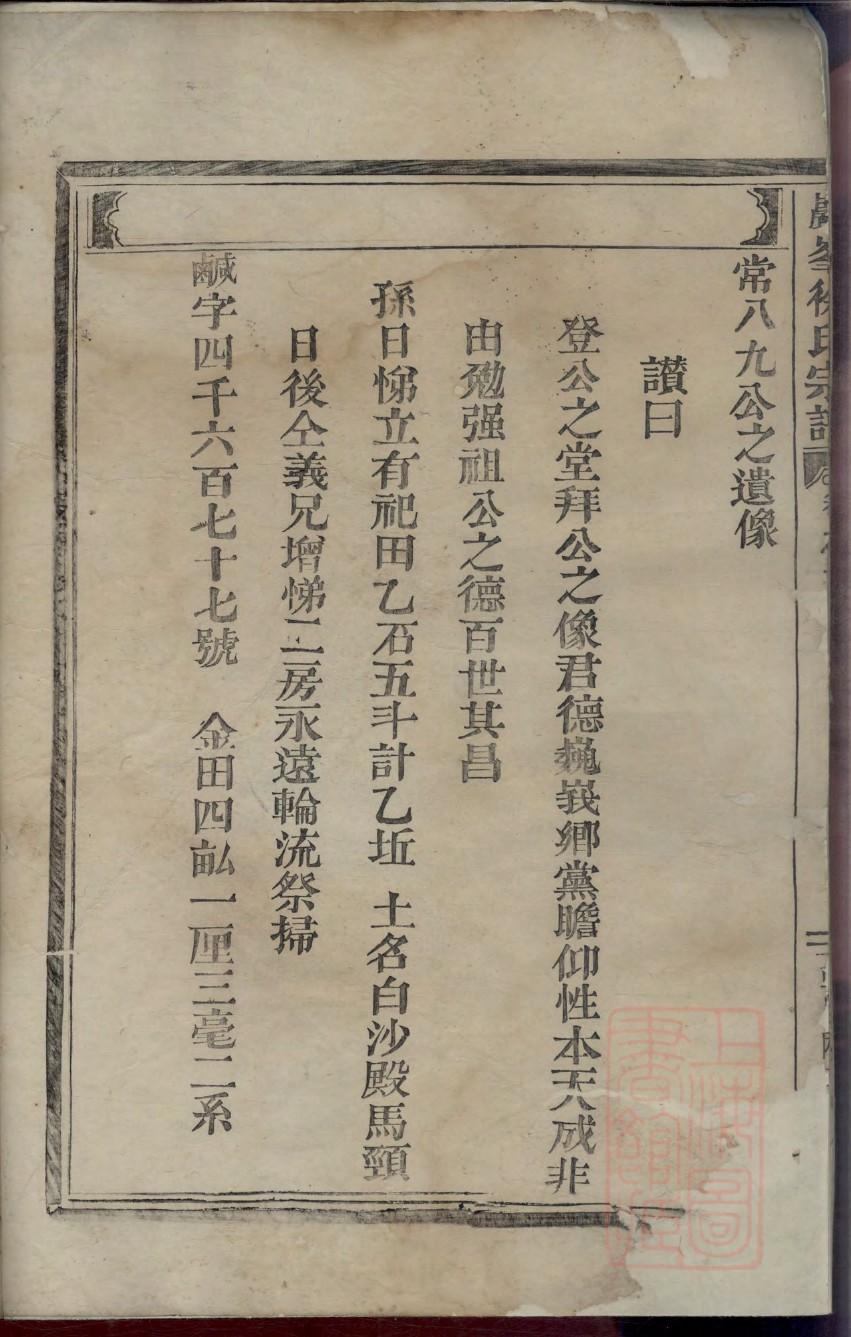 常八九公之遺像
讃曰
登公之堂拜公之像君德巍峩鄉黨瞻仰性本天成非
由勉强祖公之德百世其昌
孫日悌立有祀田乙石五斗計乙坵 土名白沙殿馬頸
日後仝義兄增悌二房永遠輪流祭掃
鹹字四千六百七十七號 金田四畝一厘三毫二系
氏宗譜